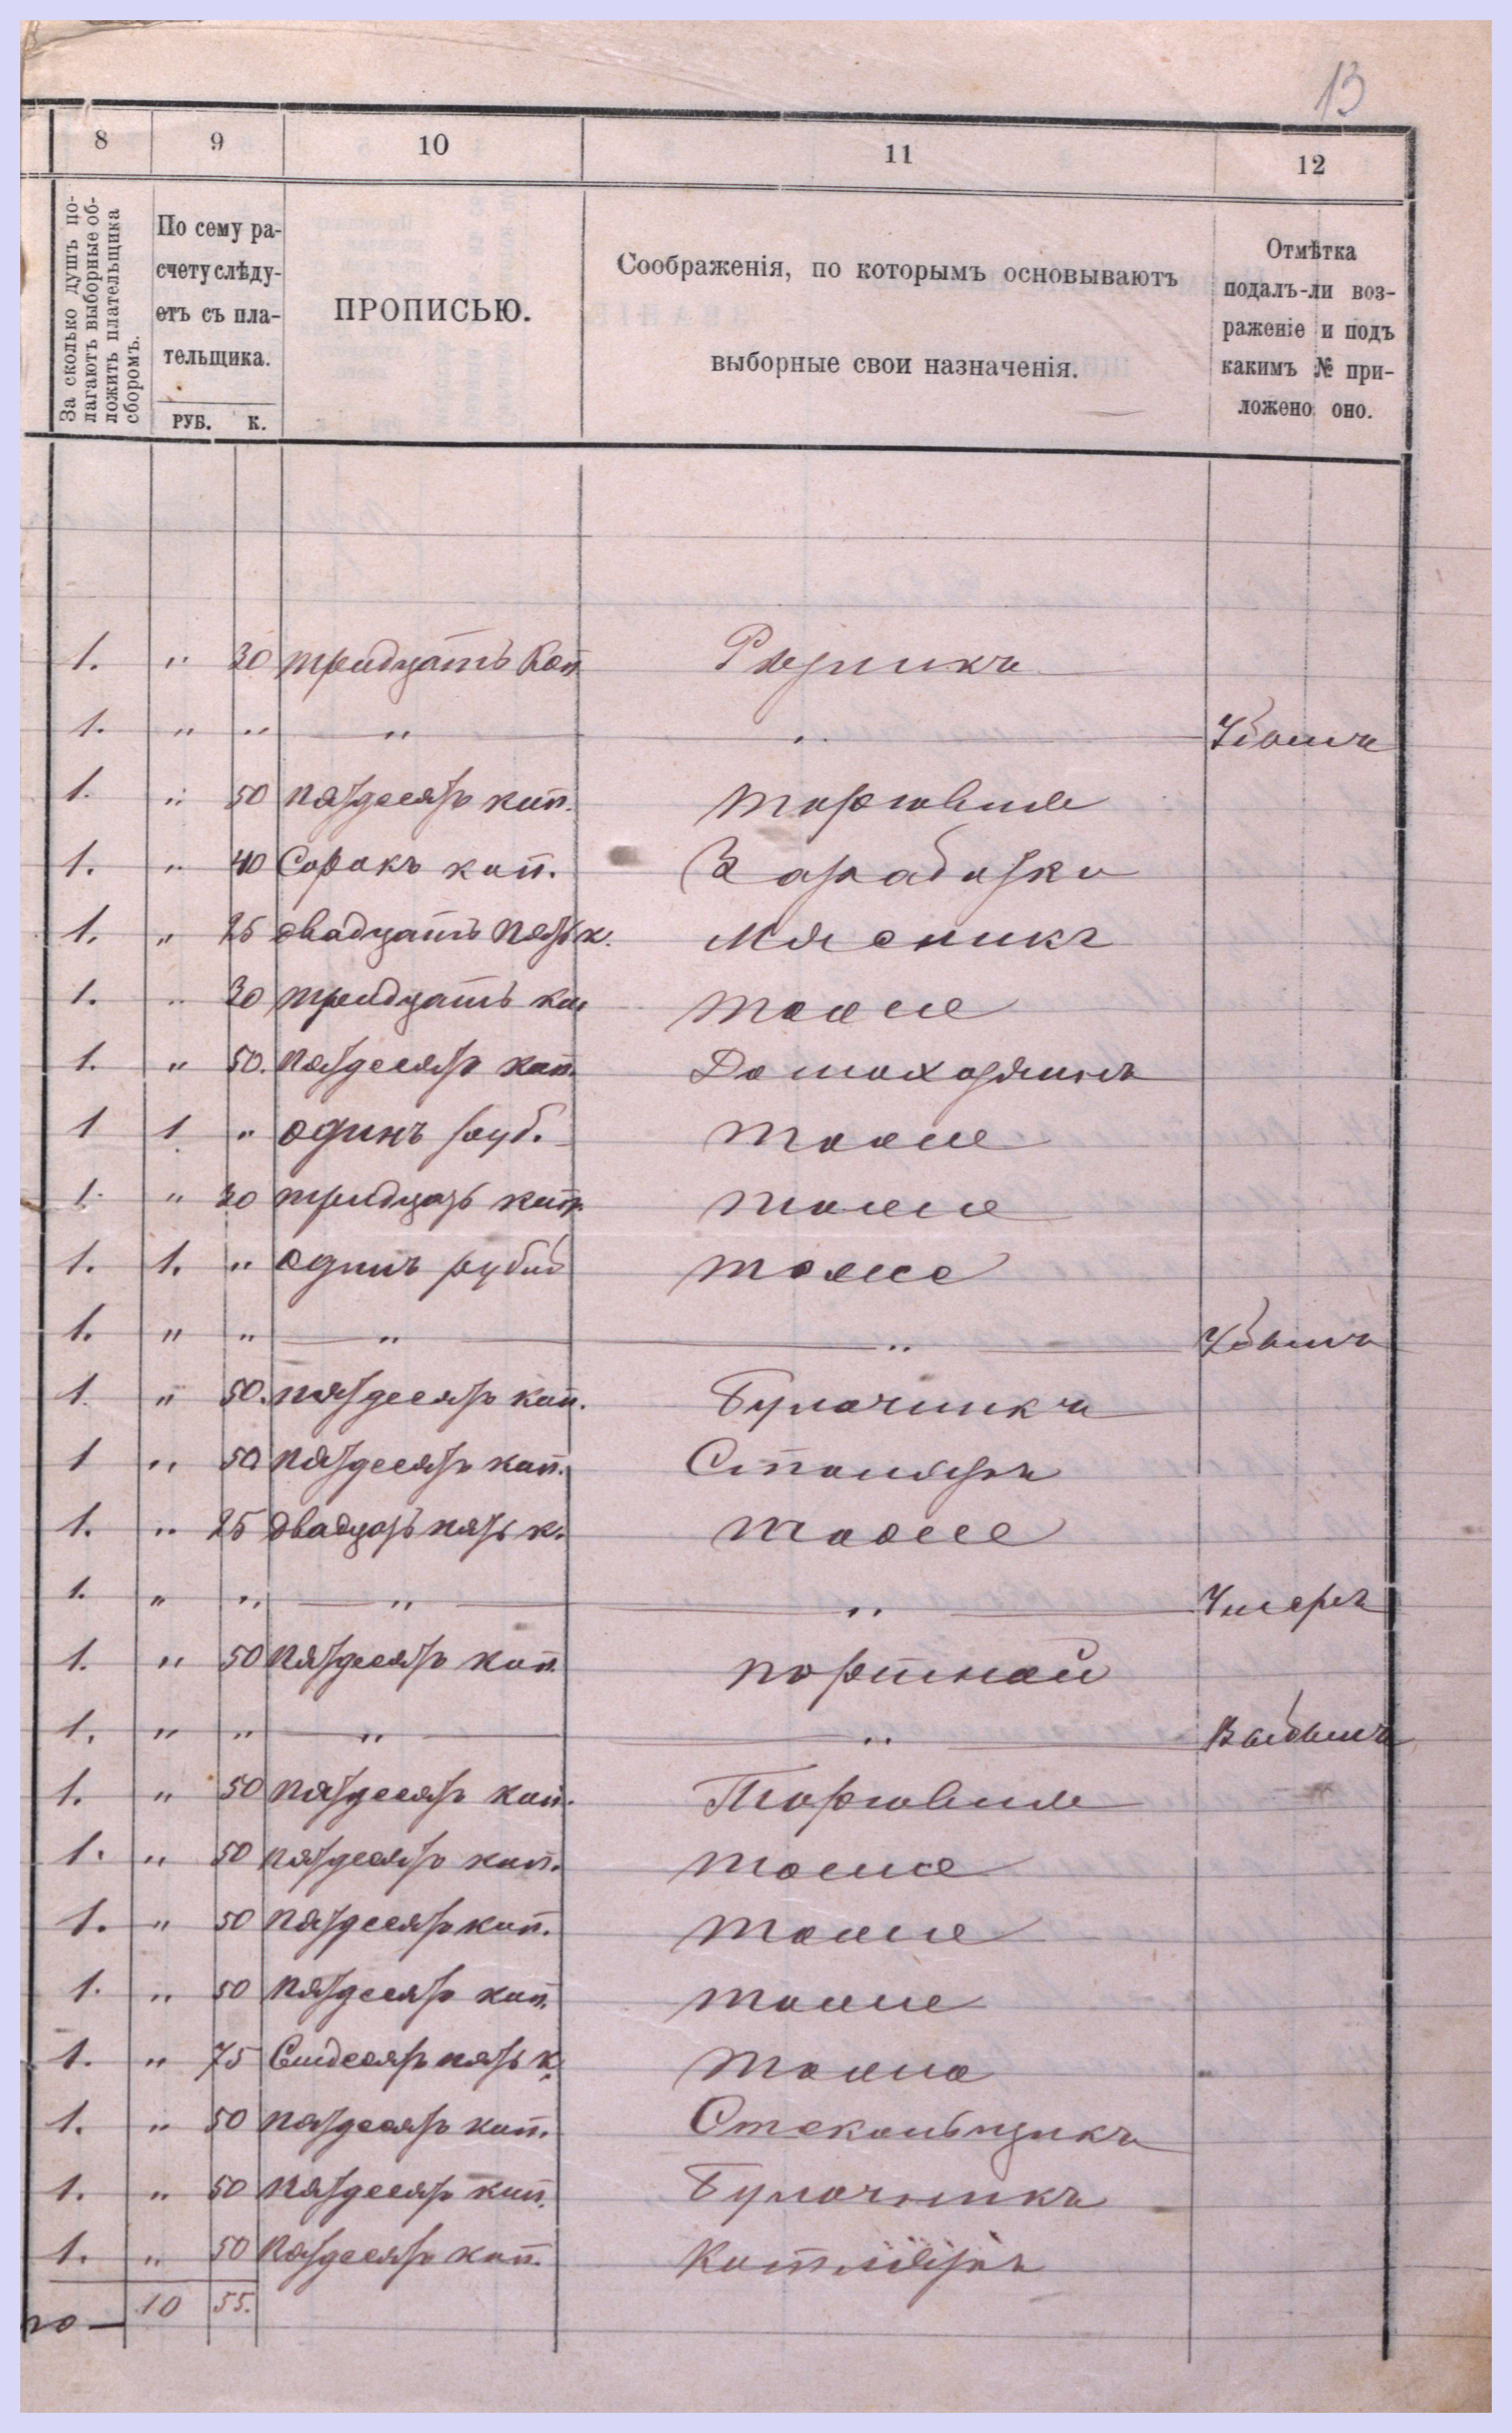 13
8 9 10 11 12
За сколько душъ по-
лагаютъ выборные об-
ложить плательщика
сборомъ.
По сему ра-
счету слѣду-
етъ съ пла-
тельщика.
РУБ. К.
ПРОПИСЬЮ.
Соображенія, по которымъ основываютъ
выборные свои назначенія.
Отмѣтка
подалъ-ли воз-
раженіе и подъ
какимъ № при-
ложено оно.
1. " 30 тридцать коп. Рѣзникъ
1. " " " "
1. " 50 пятдесятъ коп. торговля
1. " 40 Сорокъ коп. Заработки
1. " 25 двадцать пять к. мясникъ
1. " 30 тридцать коп тоже
1. " 50. пятдесятъ коп. Домохозяинъ
1 1 " одинъ руб. тоже
1. " 30 тридцать коп. тоже
1. 1. " одинъ рубль тоже
1. " " " "
1. " 50. пятдесятъ коп. Булочникъ
1 " 50 пятдесятъ коп. Столяръ
1. " 25 двадцать пять к. тоже
1. " " " " Умеръ
1. " 50 пятдесятъ коп портной
1. " " " " Выбылъ
1. " 50 пятдесятъ коп. Торговля
1. " 50 пятдесятъ коп. тоже
1. " 50 пятдесятъ коп. тоже
1. " 50 пятдесятъ коп. тоже
1. " 75 Семдесятъ пять к. тоже
1. " 50 пятдесятъ коп. Стекольщикъ
1. " 50 пятдесятъ коп. Булочникъ
1. " 50 пятдесятъ коп. Котляръ
10 55.